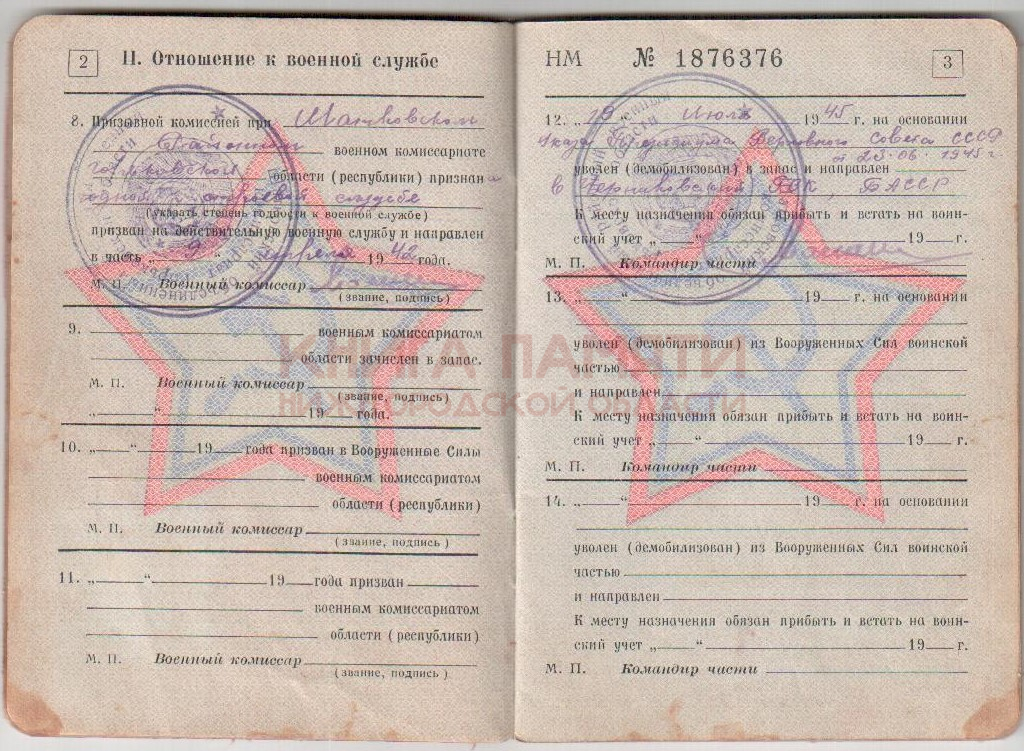 2 II. Отношение к военной службе
8. Призывной комиссией при
военном комиссариате
Горьковской области (республики) признан
годной к строевой службе
(указать степень годности к военной службе)
призван на действительную военную службу и направлен
в часть „9“ апреля 1942 года.
М. П. Военный комиссар
(звание, подпись)
9. военным комиссариатом
области зачислен в запас.
М. П. Военный комиссар
(звание, подпись)
„ “ 19 года.
10. „ “ 19 года призван в Вооруженные Силы
военным комиссариатом
области (республики)
М. П. Военный комиссар
(звание, подпись)
11. „ “ 19 года призван
военным комиссариатом
области (республики)
М. П. Военный комиссар
(звание, подпись)
НМ № 1876376 3
12. „ Июля 1945 г. на основании
Указа Президиума Верховного Совета СССР
от 25.06.1945 г.
уволен (демобилизован) в запас и направлен
в РВК, БАССР
К месту назначения обязан прибыть и встать на воин-
ский учет „ “ 19 г.
М. П. Командир части
13. „ “ 19 г. на основании
уволен (демобилизован) из Вооруженных Сил воинской
частью
и направлен
К месту назначения обязан прибыть и встать на воин-
ский учет „ “ 19 г.
М. П. Командир части
14. „ “ 19 г. на основании
уволен (демобилизован) из Вооруженных Сил воинской
частью
и направлен
К месту назначения обязан прибыть и встать на воин-
ский учет „ “ 19 г.
М. П. Командир части
КНИГА ПАМЯТИ
НИЖЕГОРОДСКОЙ ОБЛАСТИ